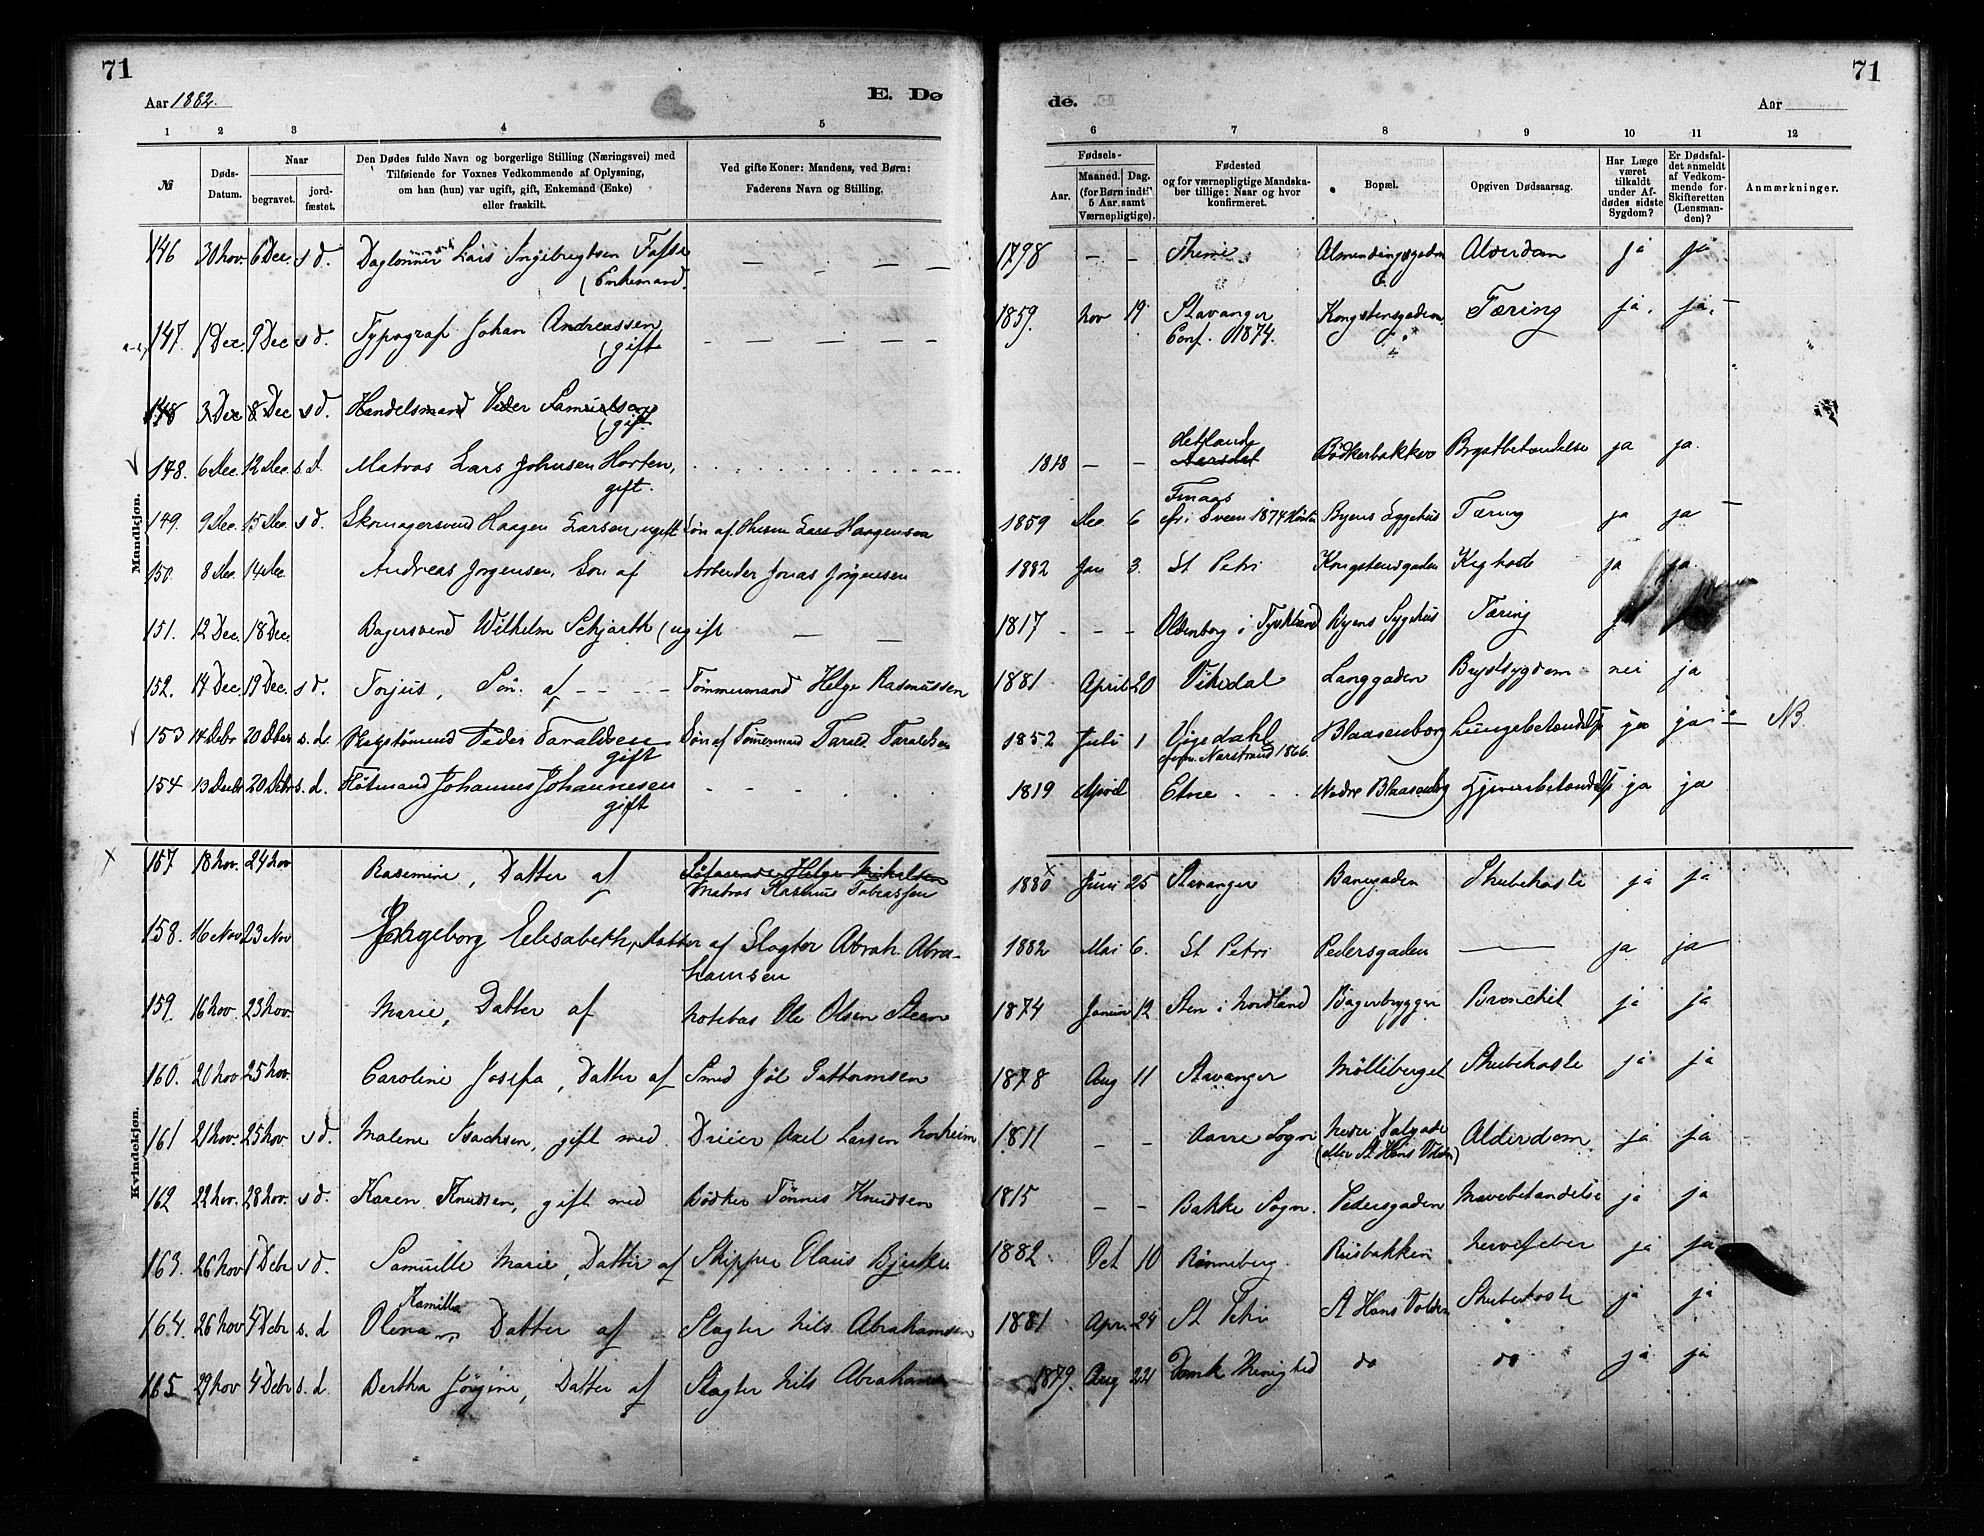 71
71
Aar 1882.
E. Dø
de.
Aar
1 2 3 4 5 6 7 8 9 10 11 12
№
Døds-Datum.
Naar
begravet.
jord-fæstet.
Den Dødes fulde Navn og borgerlige Stilling (Næringsvei) med
Tilføiende for Voxnes Vedkommende af Oplysning,
om han (hun) var ugift, gift, Enkemand (Enke)
eller fraskilt.
Ved gifte Koner: Mandens, ved Børn:
Faderens Navn og Stilling.
Fødsels-
Aar.
Maaned. Dag.
(for Børn indtil
5 Aar samt
Værnepligtige).
Fødested
og for værnepligtige Mandska-
ber tillige: Naar og hvor
konfirmeret.
Bopæl.
Opgiven Dødsaarsag.
Har Læge
været
tilkaldt
under Af-
dødes sidste
Sygdom?
Er Dødsfal-
det anmeldt
af Vedkom-
mende for
Skifteretten
(Lensman-
den)?
Anmærkninger.
Mandkjøn.
146 30 Nov. 6 Dec. s d. Daglønner Lars Ingebregtsen (Enkemand. — — — — 1798 — — Almendingsgaden Alderdom ja ja
147. 1 Dec. 9 Dec s d. Typograf Johan Andreassen (gift — — — — 1859. Nov 19. Stavanger Conf. 1874. Kongstensgaden Tæring ja. ja.
148 3 Dec 8 Dec s d. Handelsmand Peder Samuelsen (gift
148. 6 Dec. 12 Dec. s d. Matros Lars Johnsen Horten, gift. 1818 — — Hetlands Bødkerbakken Brystbetændelse ja ja.
149. 9 Dec. 15 Dec. s d. Skomagersvend Haagen Larsen, ugift Søn af Husm Lars Haagensen 1859 Dec 6 Byens Sygehus Tæring ja ja
150. 8 Dec. 14 Dec. Andreas Jørgensen, Søn af Arbeider Jonas Jørgensen 1882 Jan 3. St Petri Kongstensgaden Kighoste ja ja.
151. 12 Dec. 18 Dec. Bagersvend Wilhelm Schjarth (ugift — — 1817 - - - Oldenborg i Tyskland Byens Sygehus Tæring
152. 14 Dec. 19 Dec. s d. Torjus, Søn af Tømmermand Helge Rasmussen 1881 April 20 Vikedal Langgaden Brystsygdom nei ja
153 14 Debr 20 Dber s. d. Peder Taraldsen gift Søn af Tømmermand Tarald Taraldsen 1852 Juli 1 Vigedahl Nærstrand 1866. Blaasenborg Lungebetændelse ja ja NB.
154 13 Decbr 20 Debr s. d. Johannes Johannesen gift 1819 April Etne Nedre Blaasenborg ja ja
Kvindekjøn.
157 18 Nov. 24 Nov Rasmine, Datter af Matros Rasmus Tobiassen 1880 Juni 25 Stavanger Banegaden Strubehoste ja ja
158. 16 Nov 23 Nov Ingeborg Elisabeth, Datter af Slagter Abrah. Abra-
hamsen 1882 Mai 6. St Petri Pedersgaden — ja ja
159. 16 Nov. 23 Nov. Marie, Datter af Notebas Ole Olsen Steen 1874 Januar 12 Sten i Nordland Bagerbryggen Bronchit ja ja
160. 21 Nov 25 Nov. Caroline Josefa, Datter af Smed Jøl Guttormsen 1878 Aug 11 Stavanger Mølleberget Strubehoste ja ja
161 21 Nov. 25 Nov. s d. Malene Isachsen, gift med Dreier Axel Larsen Norheim 1811 — — Aarre Sogn Nedre Dalgade (eller St Hans Volden) Alderdom ja ja
162 22 Nov. 28 Nov. s d. Karen Knudsen, gift med Bødker Tønnes Knudsen 1815 — — Bakke Sogn. Pedersgaden Mavebetændelse ja ja
163. 26 Nov 1 Debr s d. Samuelle Marie, Datter af Skipper Claus Bjerke 1882 Oct 10 Rønneberg Risbakken Nervefeber ja ja
164. 26 Nov 4 Debr s. d Olena Kamilla Datter af Slagter Nils Abrahamsen 1881 Apr. 24 St Petri St Hans Volden Strubehoste ja ja
165 29 Nov 4 Debr s. d. Bertha Jørgine, Datter af Slagter Nils Abrahamsen 1879. Aug 22 Domk Menighed do do ja ja